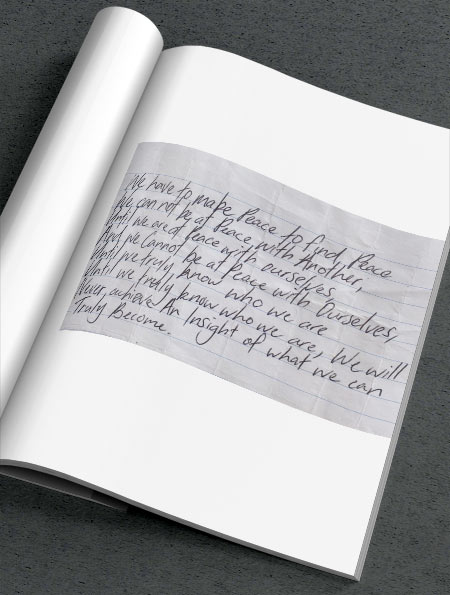 We have to make Peace to find Peace
We can not be at Peace with Another,
Until we are at Peace with ourselves
And we Cannot be at Peace with Ourselves,
Until we truly know who we are
Until we truly know who we are, We will
Never achieve An Insight of what we can
Truly Become.